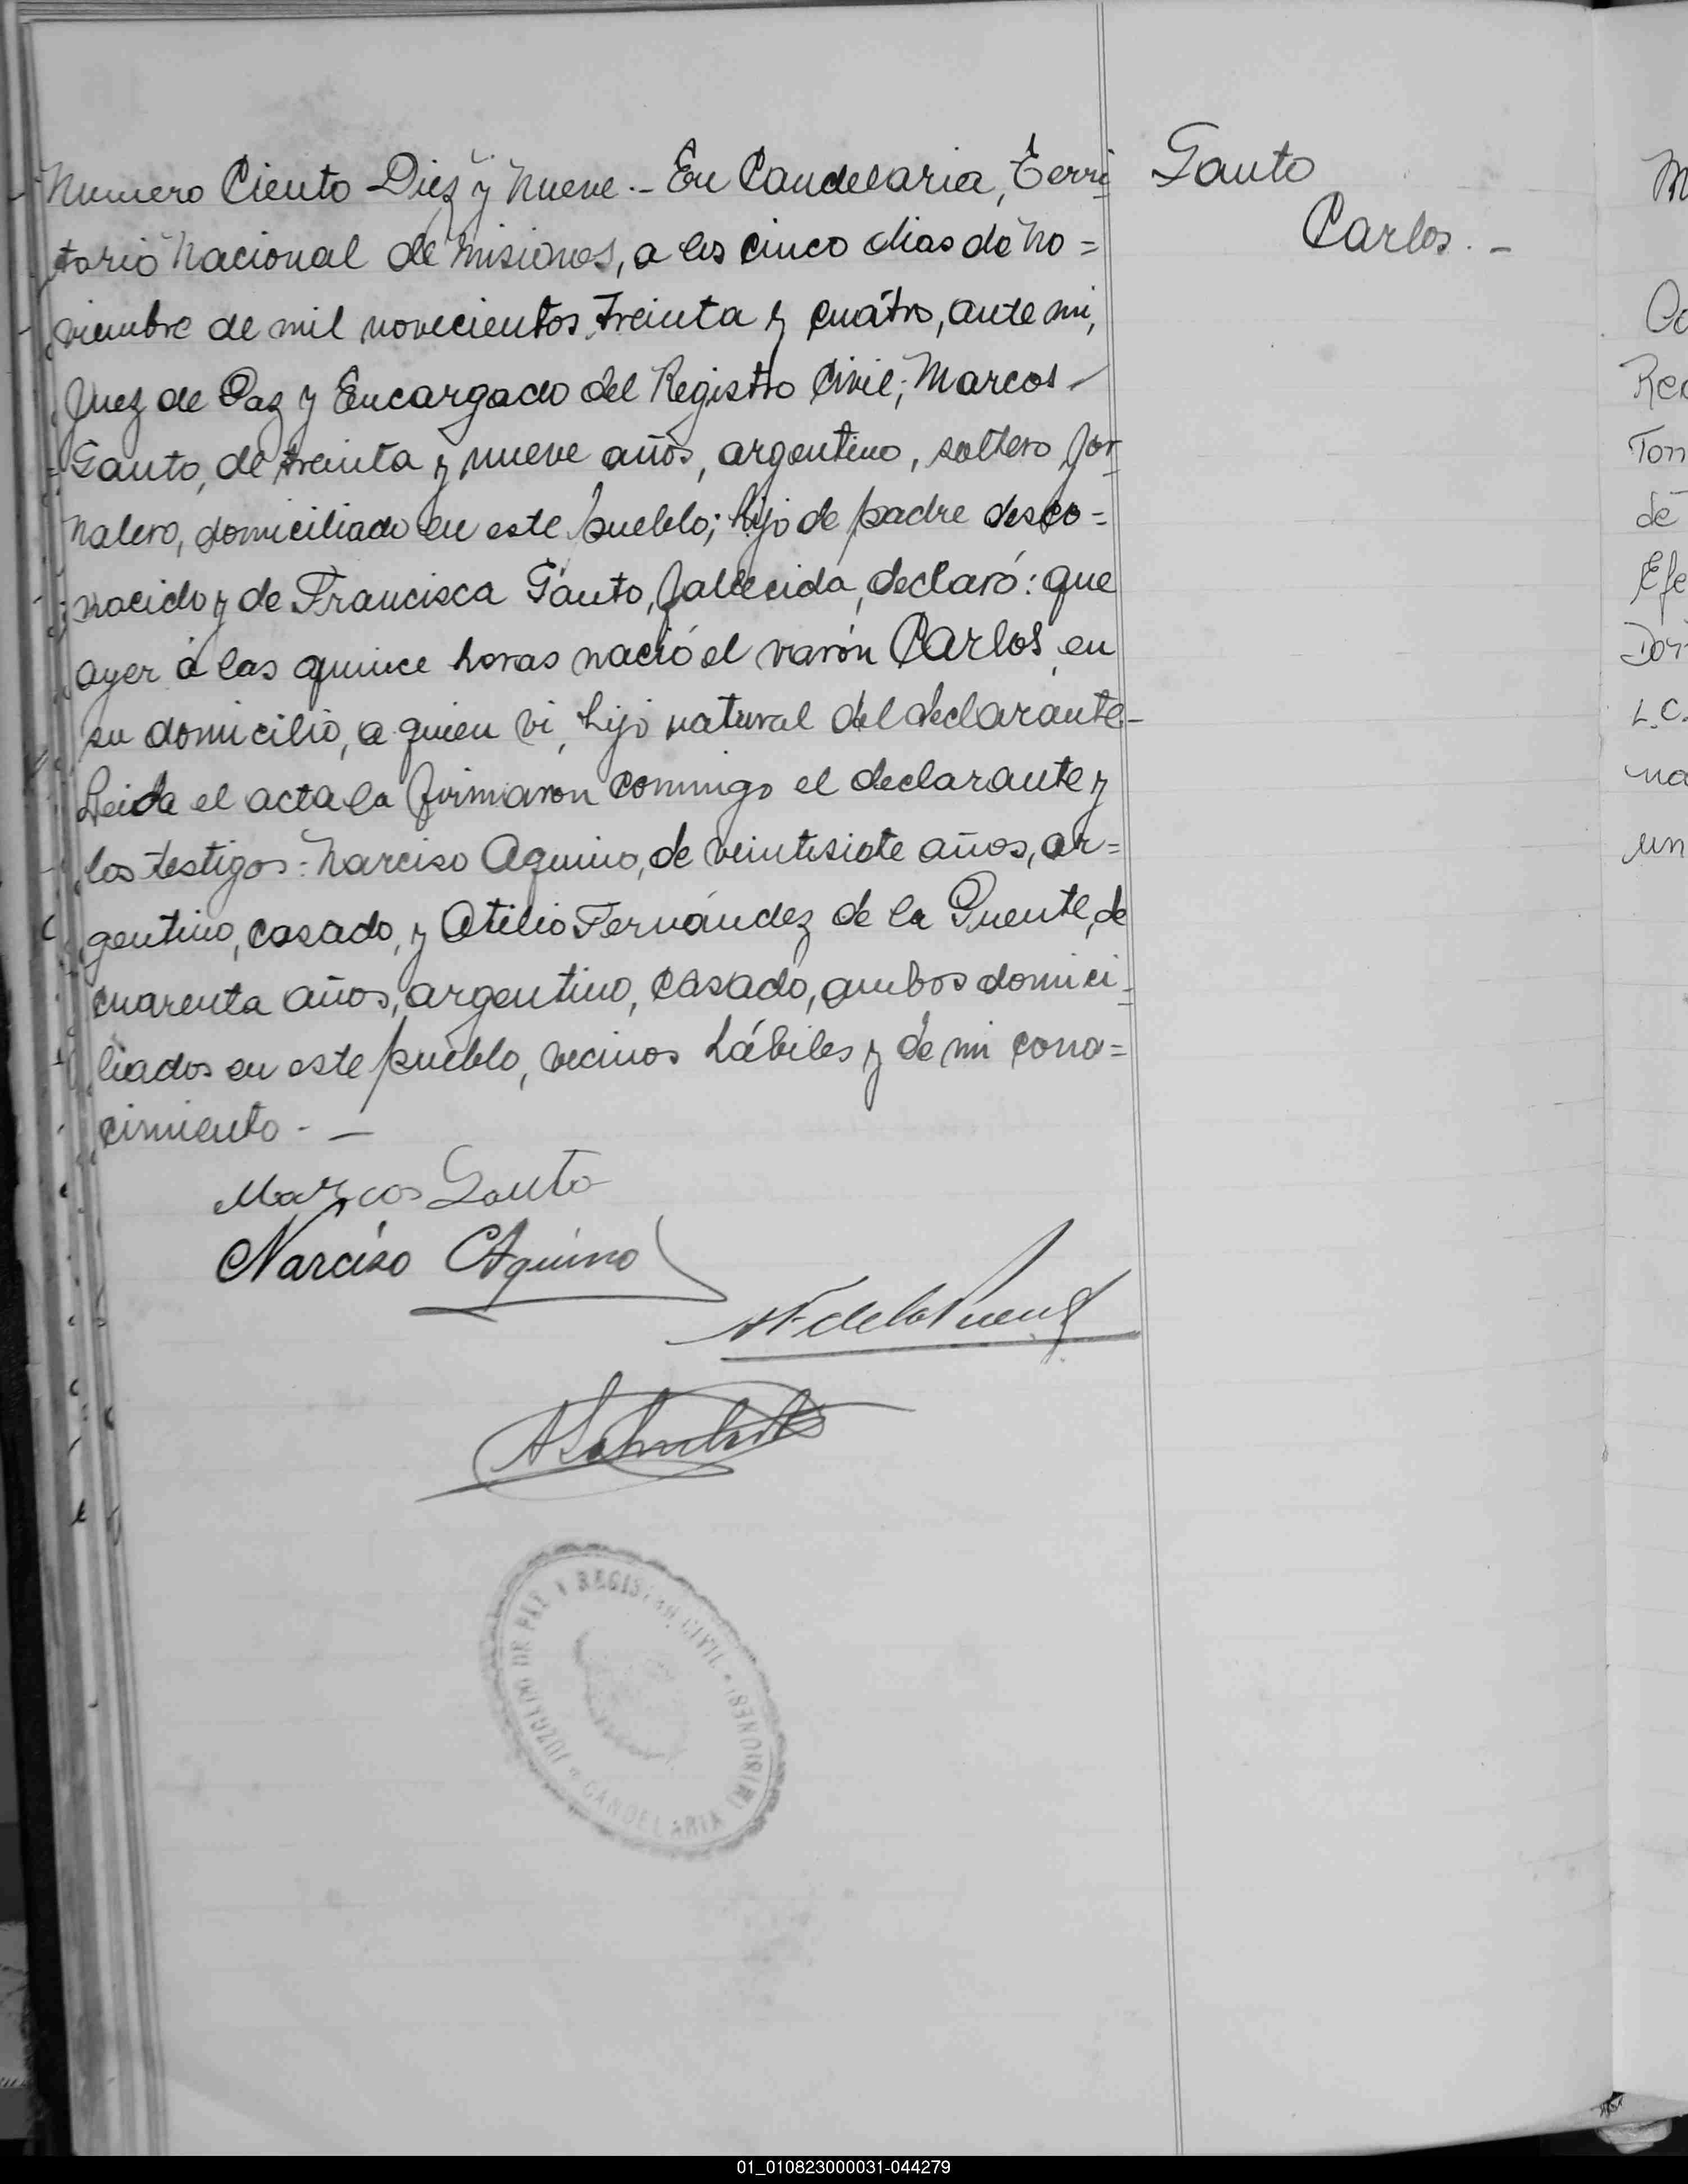 Numero Ciento Diez y Nueve.- En Candelaria, Terri-
torio Nacional de Misiones, a los cinco dias de No=
viembre de mil novecientos treinta y cuatro, ante mi,
Juez de Paz y Encargado del Registro Civil; Marcos
Gauto, de treinta y nueve años, argentino, soltero, jor-
nalero, domiciliado en este pueblo; hijo de padre desco=
nocido y de Francisca Gauto, fallecida, declaró: que
ayer a las quince horas nació el varón Carlos, en
su domicilio, a quien vi, hijo natural del declarante-
Leida el acta la firmaron conmigo el declarante y
los testigos: Narciso Aquino, de veintisiete años, ar=
gentino, casado, y Atilio Fernández de la Puente, de
cuarenta años, argentino, casado, ambos domici-
liados en este pueblo, vecinos hábiles y de mi cono=
cimiento.-
Gauto
Carlos.-
Marcos Gauto
Narciso Aquino
AF de la Puente
JUZGADO DE PAZ Y REGISTRO CIVIL
CANDELARIA (MISIONES)
01_010823000031-044279